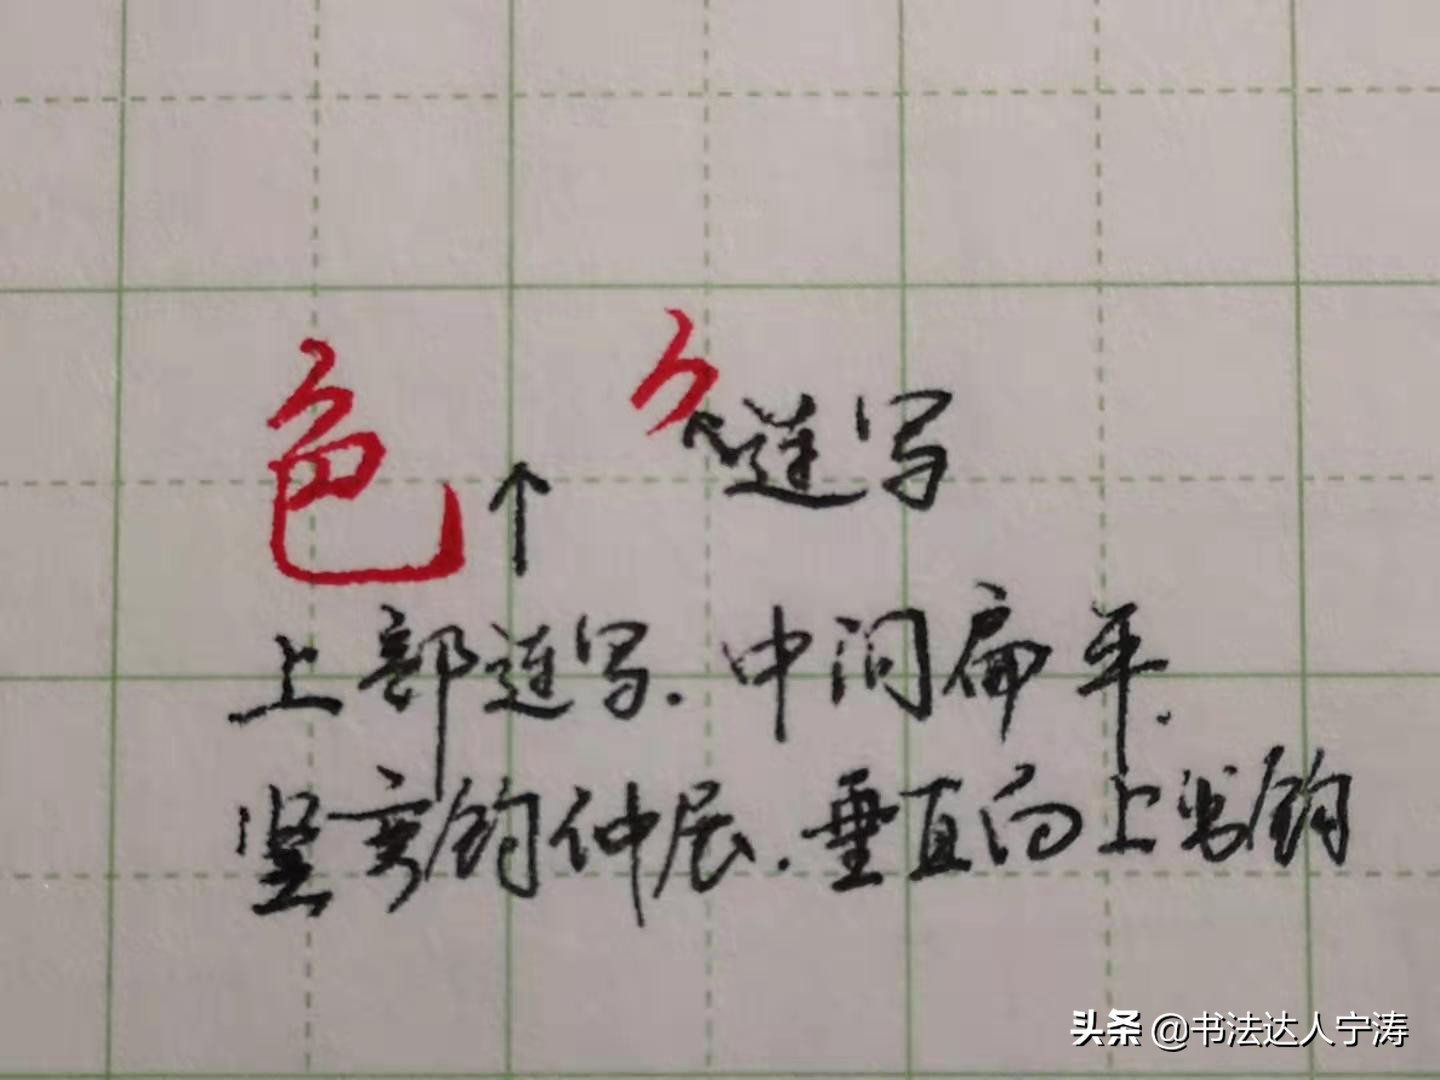 色 连写
上部连写.中间扁平.
竖弯钩伸展.垂直向上出钩
头条 @书法达人宁涛